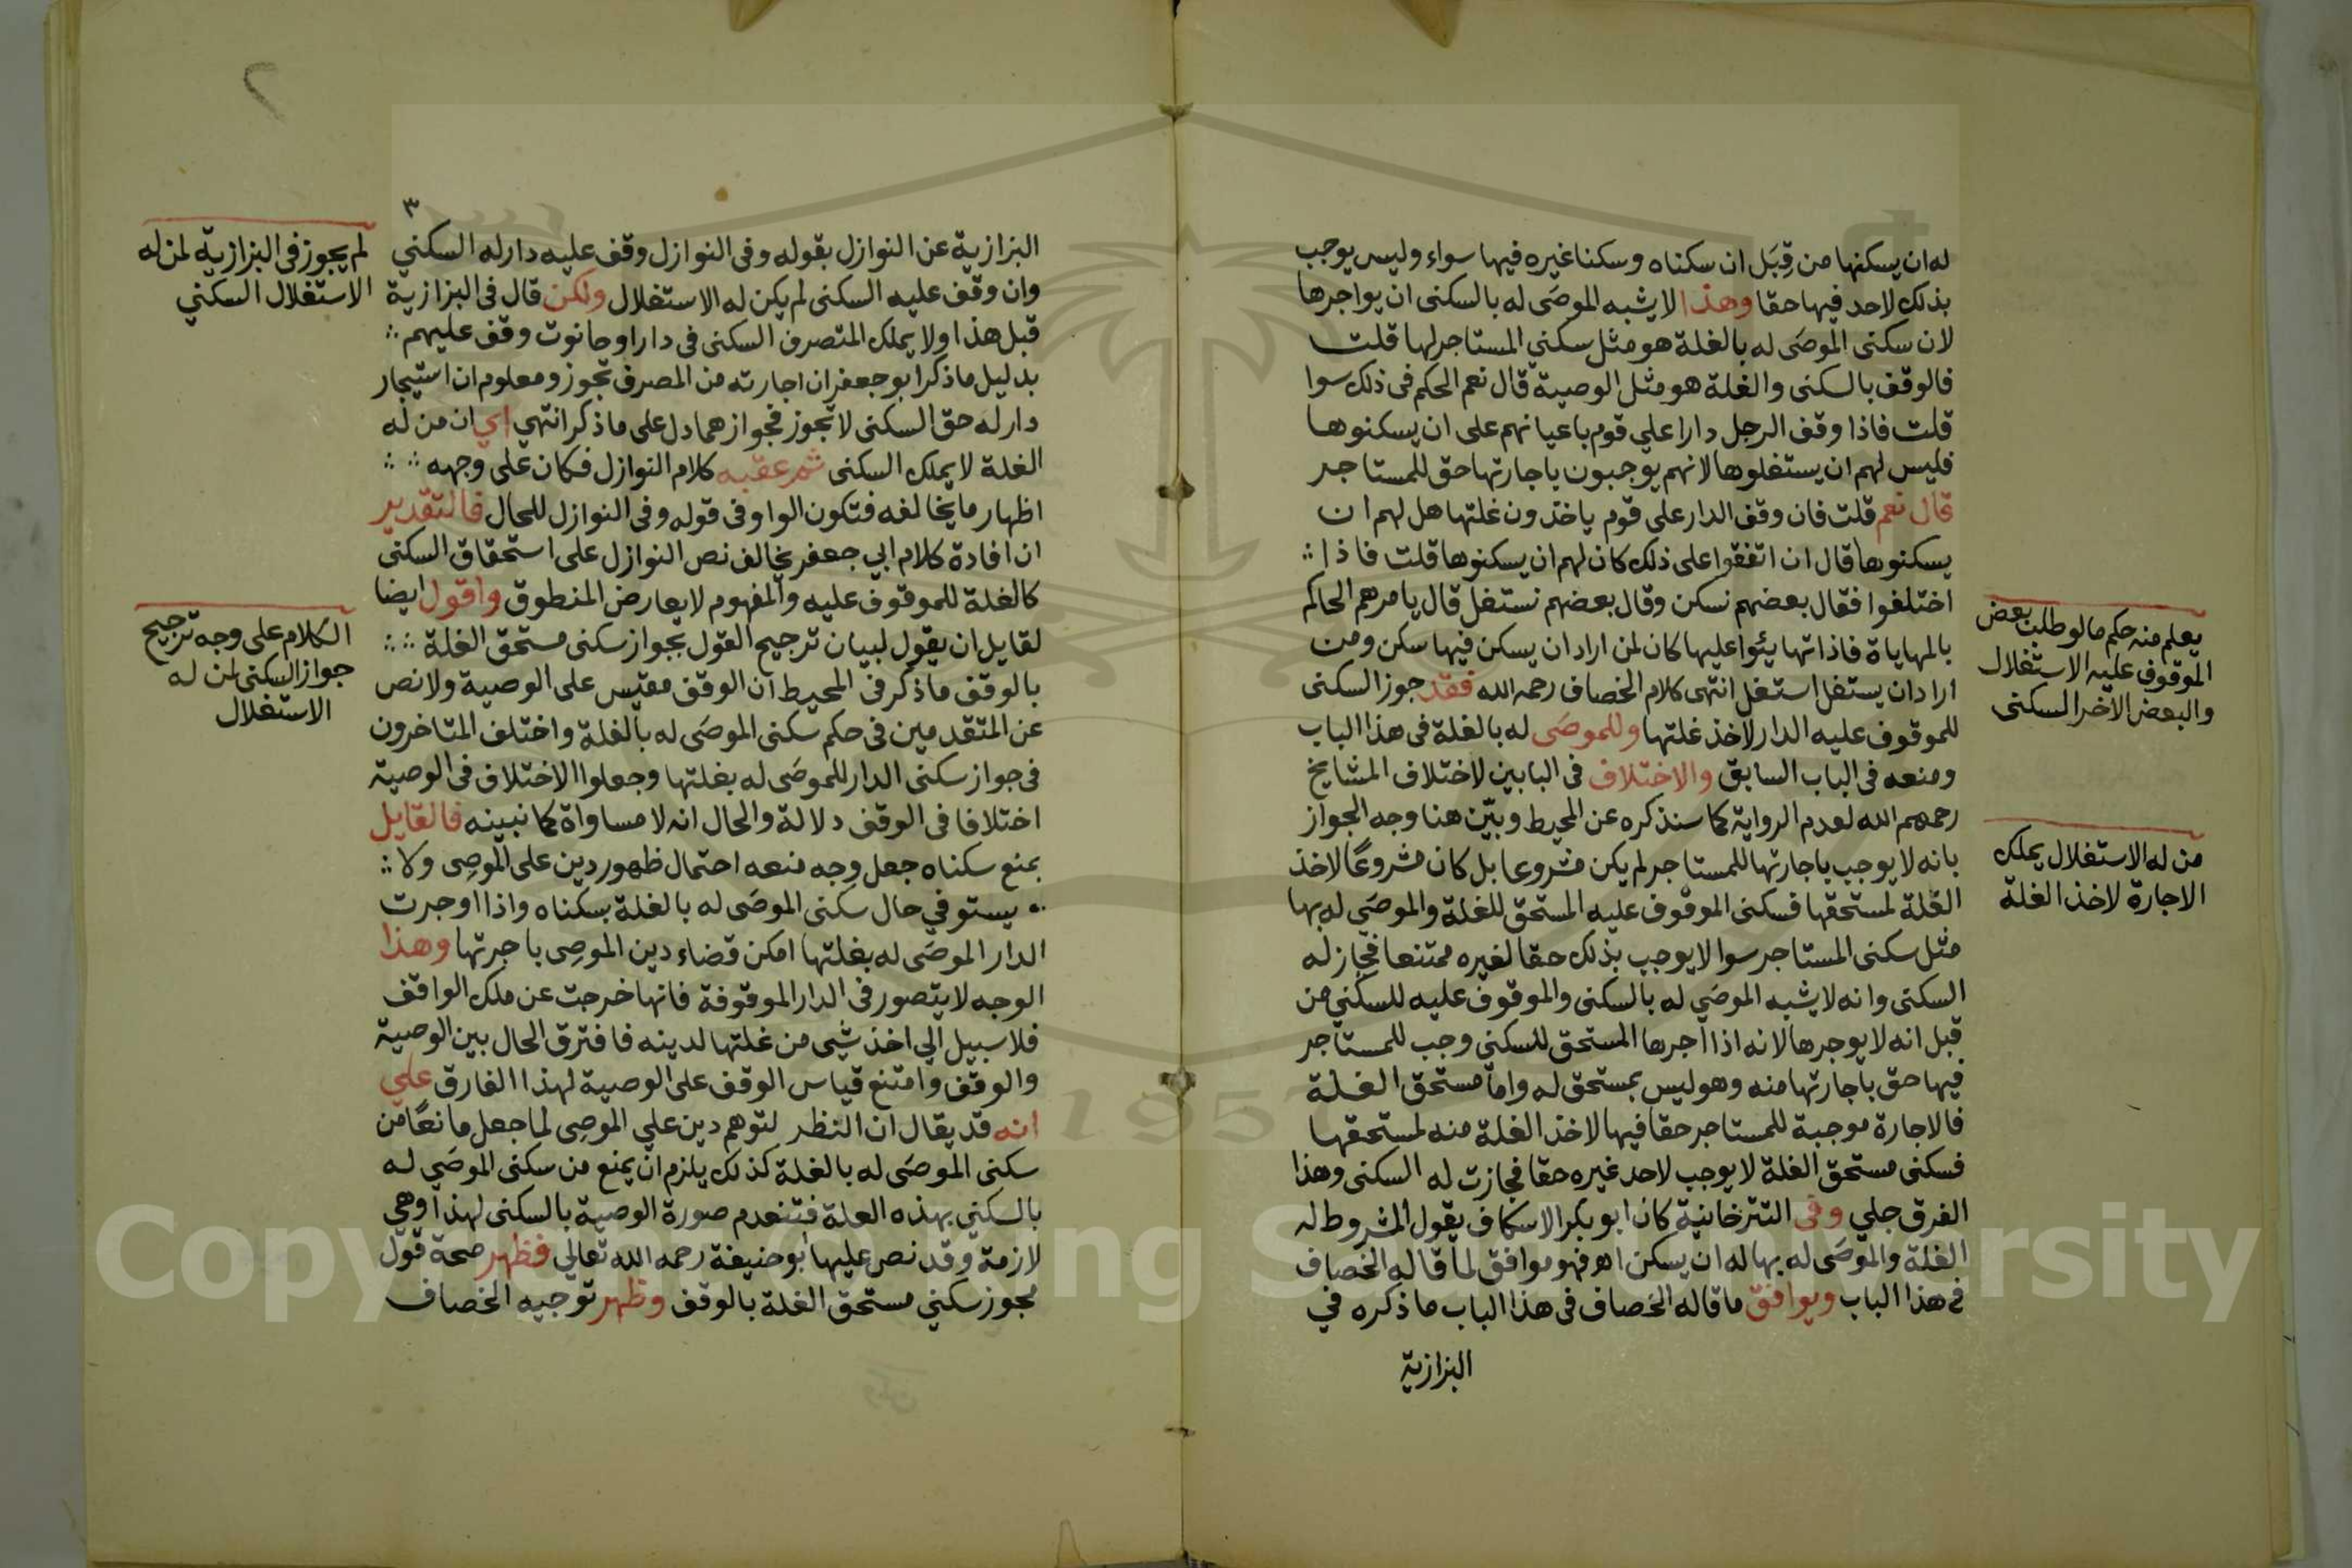 له ان يسكنها من قِبَل ان سكناه وسكنا غيره فيها سواء وليس يوجب
بذلك لاحد فيها حقا وهذا لا يشبه الموصَى له بالسكنى ان يواجرها
لان سكنى الموصَى له بالغلة هو مثل سكني المستاجر لها قلت
فالوقف بالسكنى والغلة هو مثل الوصية قال نعم الحكم فى ذلك سوا
قلت فاذا وقف الرجل دارا علي قوم باعيانهم على ان يسكنوها
فليس لهم ان يستغلوها لانهم يوجبون باجارتها حق للمستاجر
قال نعم قلت فان وقف الدار على قوم ياخذون غلتها هل لهم ان
يسكنوها قال ان اتفقوا على ذلك كان لهم ان يسكنوها قلت فاذا
اختلفوا فقال بعضهم نسكن وقال بعضهم نستغل قال يامرهم الحاكم
بالمهاياة فاذا تهايئوا عليها كان لمن اراد ان يسكن فيها سكن ومن
اراد ان يستغل استغل انتهى كلام الخصاف رحمه الله فقد جوز السكنى
للموقوف عليه الدار لاخذ غلتها وللموصَى له بالغلة فى هذا الباب
ومنعه فى الباب السابق والاختلاف فى البابين لاختلاف المشايخ
رحمهم الله لعدم الرواية كما سنذكره عن المحيط وبيّن هنا وجه الجواز
بانه لا يوجب باجارتها للمستاجر لم يكن مشروعا بل كان مشروعًا لاخذ
الغلة لمستحقها فسكنى الموقوف عليه المستحق للغلة والموصَي له بها
مثل سكنى المستاجر سوا لا يوجب بذلك حقا لغيره ممتنعا فجاز له
السكنى وانه لا يشبه الموصَي له بالسكنى والموقوف عليه للسكني من
قبل انه لا يوجرها لانه اذا اجرها المستحق للسكني وجب للمستاجر
فيها حق باجارتها منه وهو ليس بمستحق له واما مستحق الغلة
فالاجارة موجبة للمستاجر حقا فيها لاخذ الغلة منه لمستحقها
فسكنى مستحق الغلة لا يوجب لاحد غيره حقا فجازت له السكنى وهذا
الفرق جلي وفى التترخانية كان ابو بكر الاسكاف يقول المشروط له
الغلة والموصَى له بها له ان يسكن اه فهو موافق لما قاله الخصاف
فى هذا الباب ويوافق ما قاله الخصاف فى هذا الباب ما ذكره في
البزازية
يعلم منه حكم ما لو طلب بعض
الموقوف عليه الاستغلال
والبعض الاخر السكنى
من له الاستغلال يملك
الاجارة لاخذ الغلة
٣
البزازية عن النوازل بقوله وفى النوازل وقف عليه دار له السكني
وان وقف عليه السكنى لم يكن له الاستغلال ولكن قال فى البزازية
قبل هذا ولا يملك المتصرف السكنى فى دار او حانوت وقف عليهم
بدليل ما ذكر ابو جعفر ان اجارته من المصرف تجوز ومعلوم ان استيجار
دار له حق السكنى لا تجوز فجوازهما دل على ما ذكر انتهي اي ان من له
الغلة لا يملك السكنى ثم عقبه كلام النوازل فكان على وجهه
اظهار ما يخالفه فتكون الواو فى قوله وفى النوازل للحال فالتقدير
ان افادة كلام ابي جعفر يخالف نص النوازل على استحقاق السكنى
كالغلة للموقوف عليه والمفهوم لا يعارض المنطوق واقول ايضا
لقايل ان يقول لبيان ترجيح القول بجواز سكنى مستحق الغلة
بالوقف ما ذكر فى المحيط ان الوقف مقيس على الوصية ولا نص
عن المتقدمين فى حكم سكنى الموصَى له بالغلة واختلف المتاخرون
فى جواز سكنى الدار للموصَى له بغلتها وجعلوا الاختلاف فى الوصية
اختلافا فى الوقف دلالة والحال انه لا مساواة كما نبينه فالقايل
بمنع سكناه جعل وجه منعه احتمال ظهور دين على الموصِى ولا
يستوفي حال سكنى الموصَى له بالغلة بسكناه واذا اوجرت
الدار الموصَى له بغلتها امكن قضاء دين الموصِى باجرتها وهذا
الوجه لا يتصور فى الدار الموقوفة فانها خرجت عن ملك الواقف
فلا سبيل الي اخذ شيى من غلتها لدينه فافترق الحال بين الوصية
والوقف وامتنع قياس الوقف على الوصية لهذا الفارق علي
انه قد يقال ان النظر لتوهم دين علي الموصِى لما جعل مانعًا من
سكنى الموصَى له بالغلة كذلك يلزم ان يمنع من سكنى الموصَي له
بالسكني بهذه العلة فتنعدم صورة الوصية بالسكنى لهذا وهي
لازمة وقد نص عليها ابو حنيفة رحمه الله تعالي فظهر صحة قول
مجوز سكني مستحق الغلة بالوقف وظهر توجيه الخصاف
لم يجوز فى البزازية لمن له
الاستغلال السكني
الكلام على وجه ترجيح
جواز السكنى لمن له
الاستغلال
Copyright © King Saud University
195